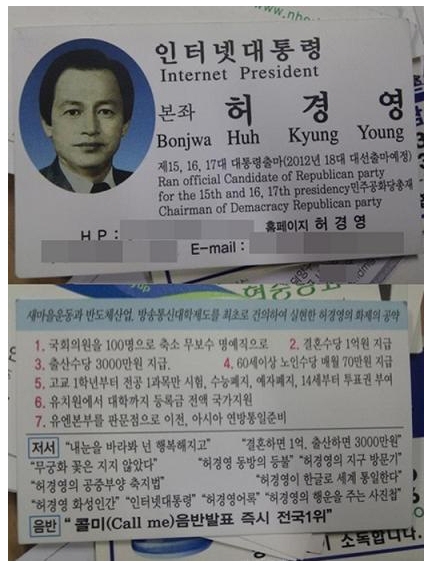 www.nho
인터넷대통령
Internet President
본좌 허 경 영
Bonjwa Huh Kyung Young
제15, 16, 17대 대통령출마(2012년 18대 대선출마예정)
Ran official Candidate of Republican party
for the 15th and 16, 17th presidency민주공화당총재
Chairman of Demacracy Republican party
홈페이지 허경영
H P :
E-mail :
새마을운동과 반도체산업, 방송통신대학제도를 최초로 건의하여 실현한 허경영의 화제의 공약
1. 국회의원을 100명으로 축소 무보수 명예직으로 2. 결혼수당 1억원 지급
3. 출산수당 3000만원 지급. 4. 60세이상 노인수당 매월 70만원 지급
5. 고교 1학년부터 전공 1과목만 시험, 수능폐지, 예자폐지, 14세부터 투표권 부여
6. 유치원에서 대학까지 등록금 전액 국가지원
7. 유엔본부를 판문점으로 이전, 아시아 연방통일준비
저서 "내눈을 바라봐 넌 행복해지고" "결혼하면 1억, 출산하면 3000만원"
"무궁화 꽃은 지지 않았다" "허경영 동방의 등불" "허경영의 지구 방문기"
"허경영의 공중부양 축지법" "허경영이 한글로 세계 통일한다"
"허경영 화성인간" "인터넷대통령" "허경영어록" "허경영의 행운을 주는 사진첩"
음반 " 콜미(Call me)음반발표 즉시 전국1위"
소독합니다.